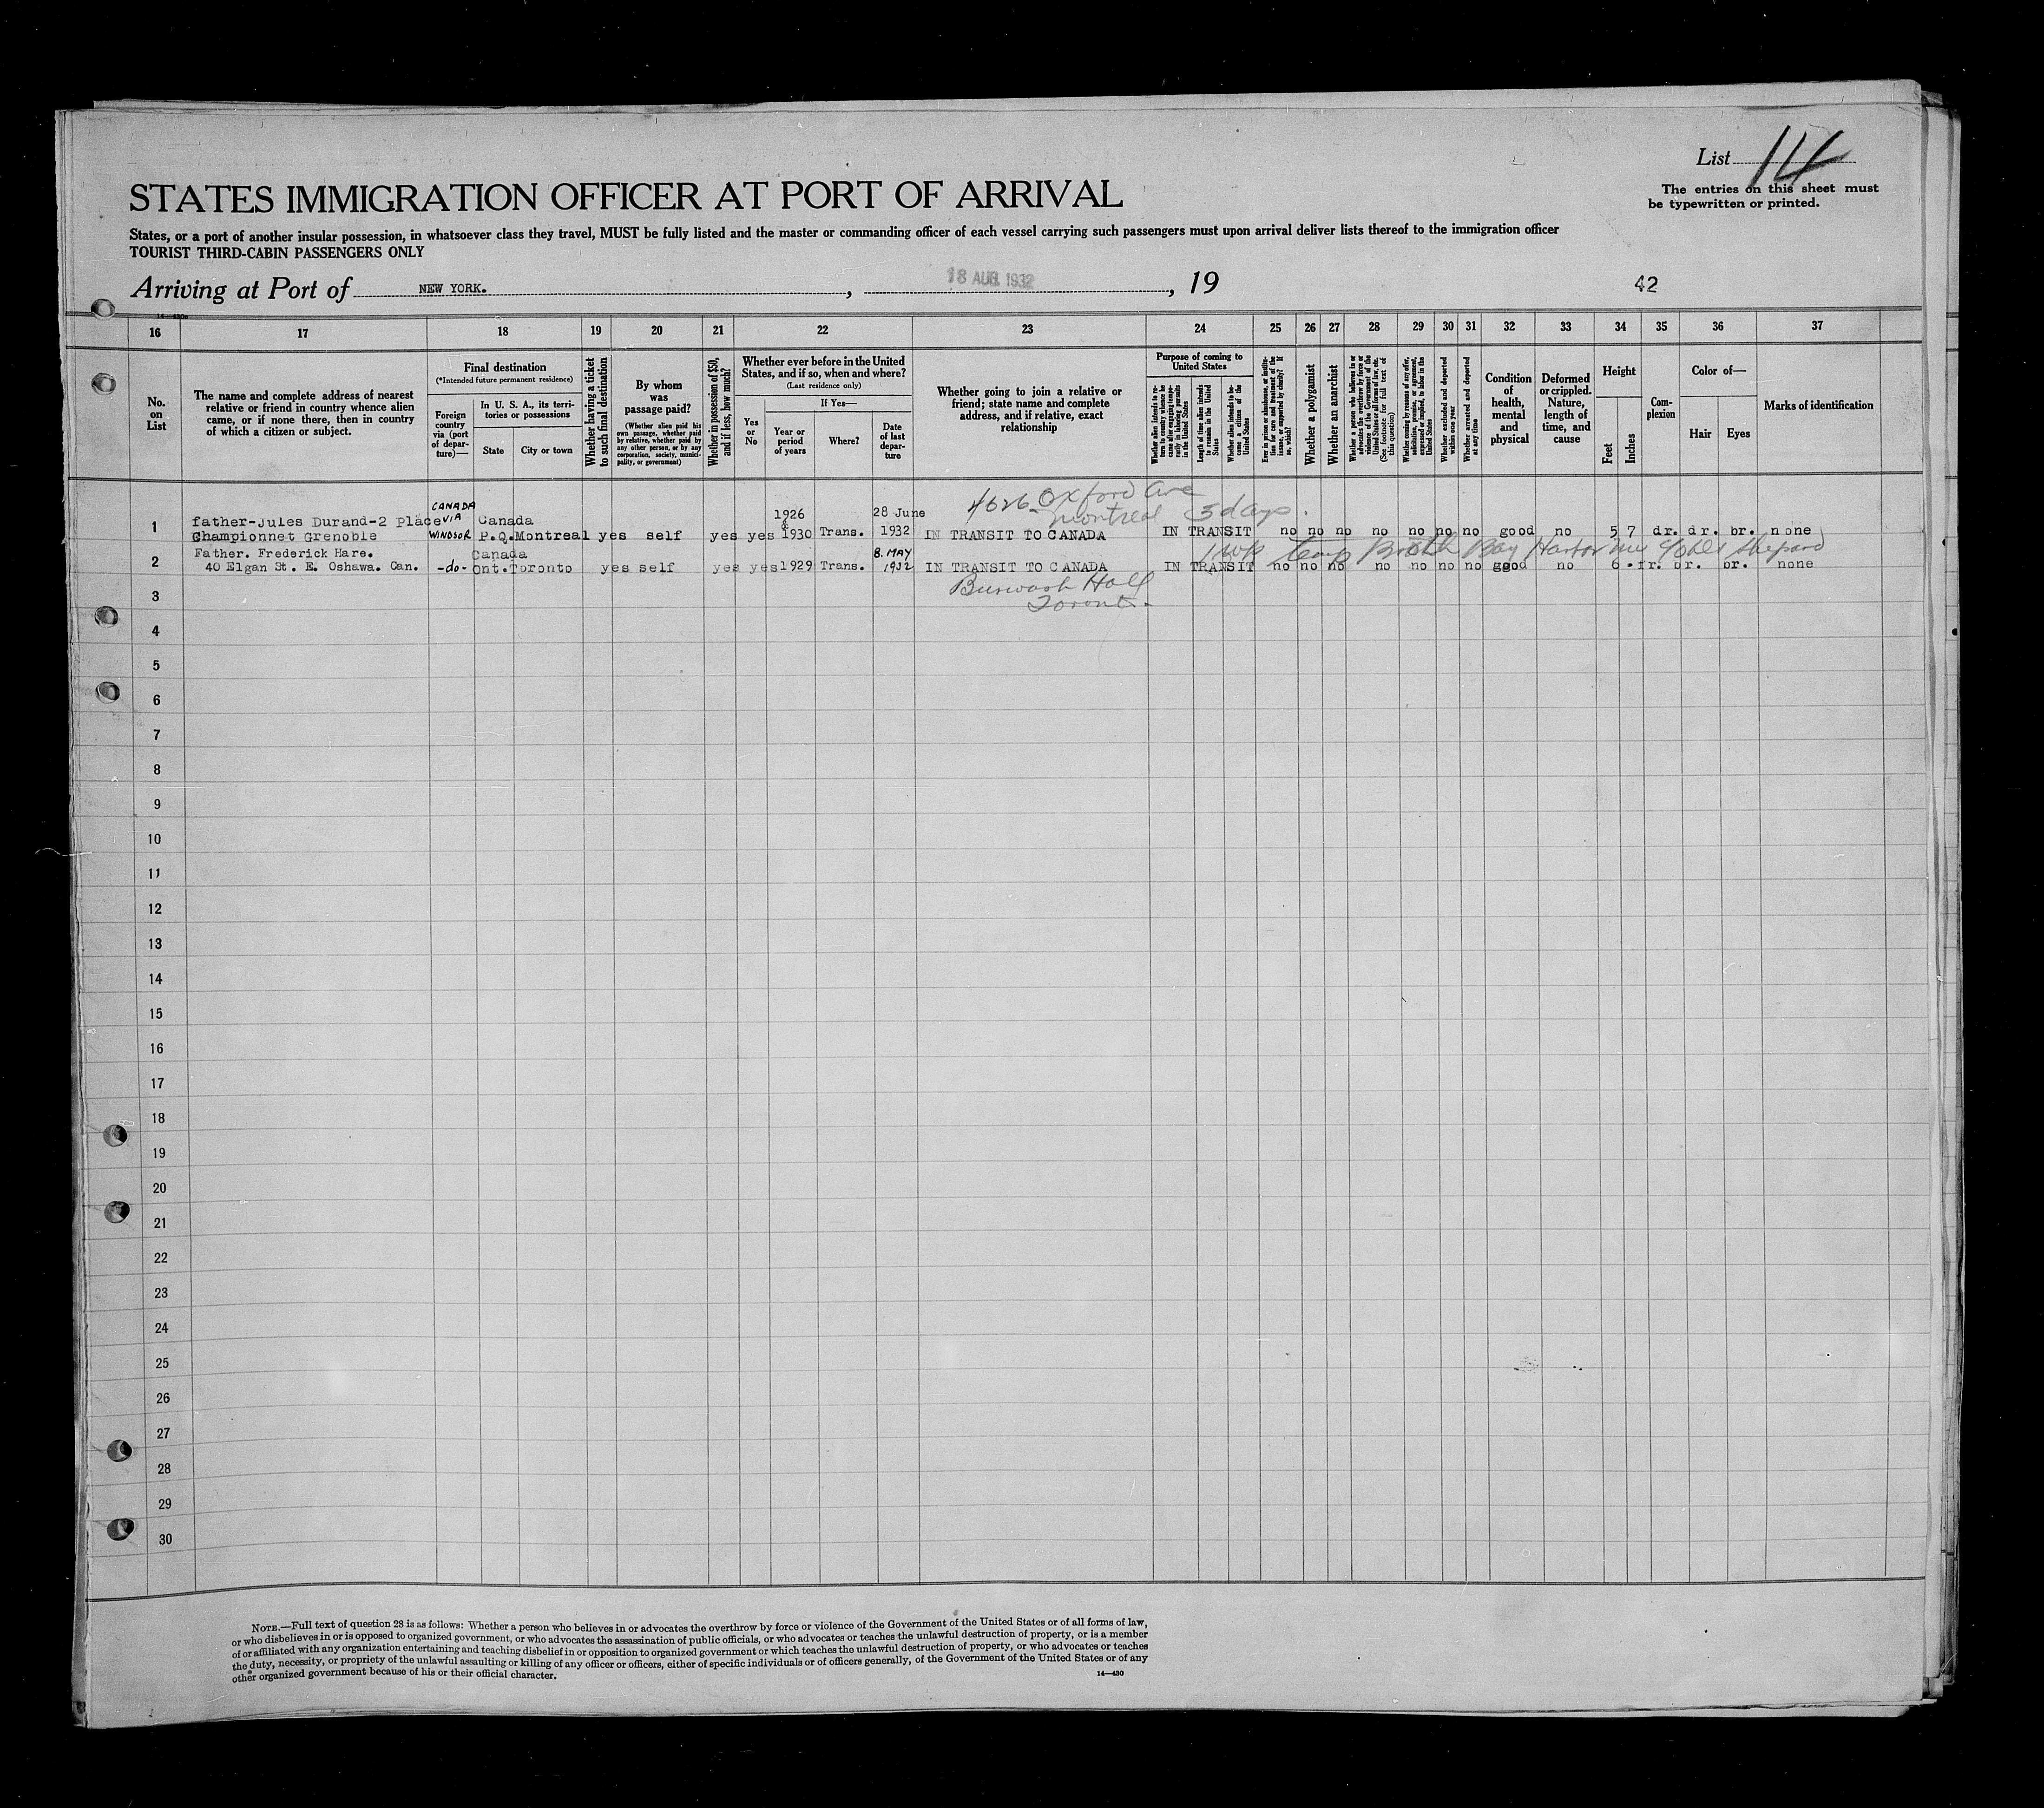 List 14
The entries on this sheet must
be typewritten or printed.
STATES IMMIGRATION OFFICER AT PORT OF ARRIVAL
States, or a port of another insular possession, in whatsoever class they travel, MUST be fully listed and the master or commanding officer of each vessel carrying such passengers must upon arrival deliver lists thereof to the immigration officer
TOURIST THIRD-CABIN PASSENGERS ONLY
Arriving at Port of NEW YORK. , 18 AUG. 1932 , 19
42
14—430c
16 17 18 19 20 21 22 23 24 25 26 27 28 29 30 31 32 33 34 35 36 37
No.
on
List
The name and complete address of nearest
relative or friend in country whence alien
came, or if none there, then in country
of which a citizen or subject.
Final destination
(*Intended future permanent residence)
Foreign
country
via (port
of depar-
ture)—
In U. S. A., its terri-
tories or possessions
State
City or town
Whether having a ticket
to such final destination
By whom
was
passage paid?
(Whether alien paid his
own passage, whether paid
by relative, whether paid by
any other person, or by any
corporation, society, munici-
pality, or government)
Whether in possession of $50,
and if less, how much?
Whether ever before in the United
States, and if so, when and where?
(Last residence only)
Yes
or
No
If Yes—
Year or
period
of years
Where?
Date
of last
depar-
ture
Whether going to join a relative or
friend; state name and complete
address, and if relative, exact
relationship
Purpose of coming to
United States
Whether alien intends to re-
turn to country whence he
came after engaging tempo-
rarily in laboring pursuits
in the United States
Length of time alien intends
to remain in the United
States
Whether alien intends to be-
come a citizen of the
United States
Ever in prison or almshouse, or institu-
tion for care and treatment of the
insane, or supported by charity? If
so, which?
Whether a polygamist
Whether an anarchist
Whether a person who believes in or
advocates the overthrow by force or
violence of the Government of the
United States or all forms of law, etc.
(See footnote for full text of
this question)
Whether coming by reasons of any offer,
solicitation, promise, or agreement,
expressed or implied, to labor in the
United States
Whether excluded and deported
within one year
Whether arrested and deported
at any time
Condition
of
health,
mental
and
physical
Deformed
or crippled.
Nature,
length of
time, and
cause
Height
Feet
Inches
Com-
plexion
Color of—
Hair
Eyes
Marks of identification
4626 Oxford Ave
Montreal 3 days.
CANADA 1926 28 June
father-Jules Durand-2 Place VIA Canada &
1 Championnet Grenoble WINDSOR P.Q. Montreal yes self yes yes 1930 Trans. 1932 IN TRANSIT TO CANADA IN TRANSIT no no no no no no no good no 5 7 dr. dr. br. none
Father. Frederick Hare. Canada 8. MAY 1 wk Bay Harbor
2 40 Elgan St. E. Oshawa. Can. -do- Ont. Toronto yes self yes yes 1929 Trans. 1932 IN TRANSIT TO CANADA IN TRANSIT no no no no no no no good no 6 - fr. br. br. none
3 Burwash Hall
Toronto
4
5
6
7
8
9
10
11
12
13
14
15
16
17
18
19
20
21
22
23
24
25
26
27
28
29
30
NOTE.—Full text of question 28 is as follows: Whether a person who believes in or advocates the overthrow by force or violence of the Government of the United States or of all forms of law,
or who disbelieves in or is opposed to organized government, or who advocates the assassination of public officials, or who advocates or teaches the unlawful destruction of property, or is a member
of or affiliated with any organization entertaining and teaching disbelief in or opposition to organized government or which teaches the unlawful destruction of property, or who advocates or teaches
the duty, necessity, or propriety of the unlawful assaulting or killing of any officer or officers, either of specific individuals or of officers generally, of the Government of the United States or of any
other organized government because of his or their official character.
14—430